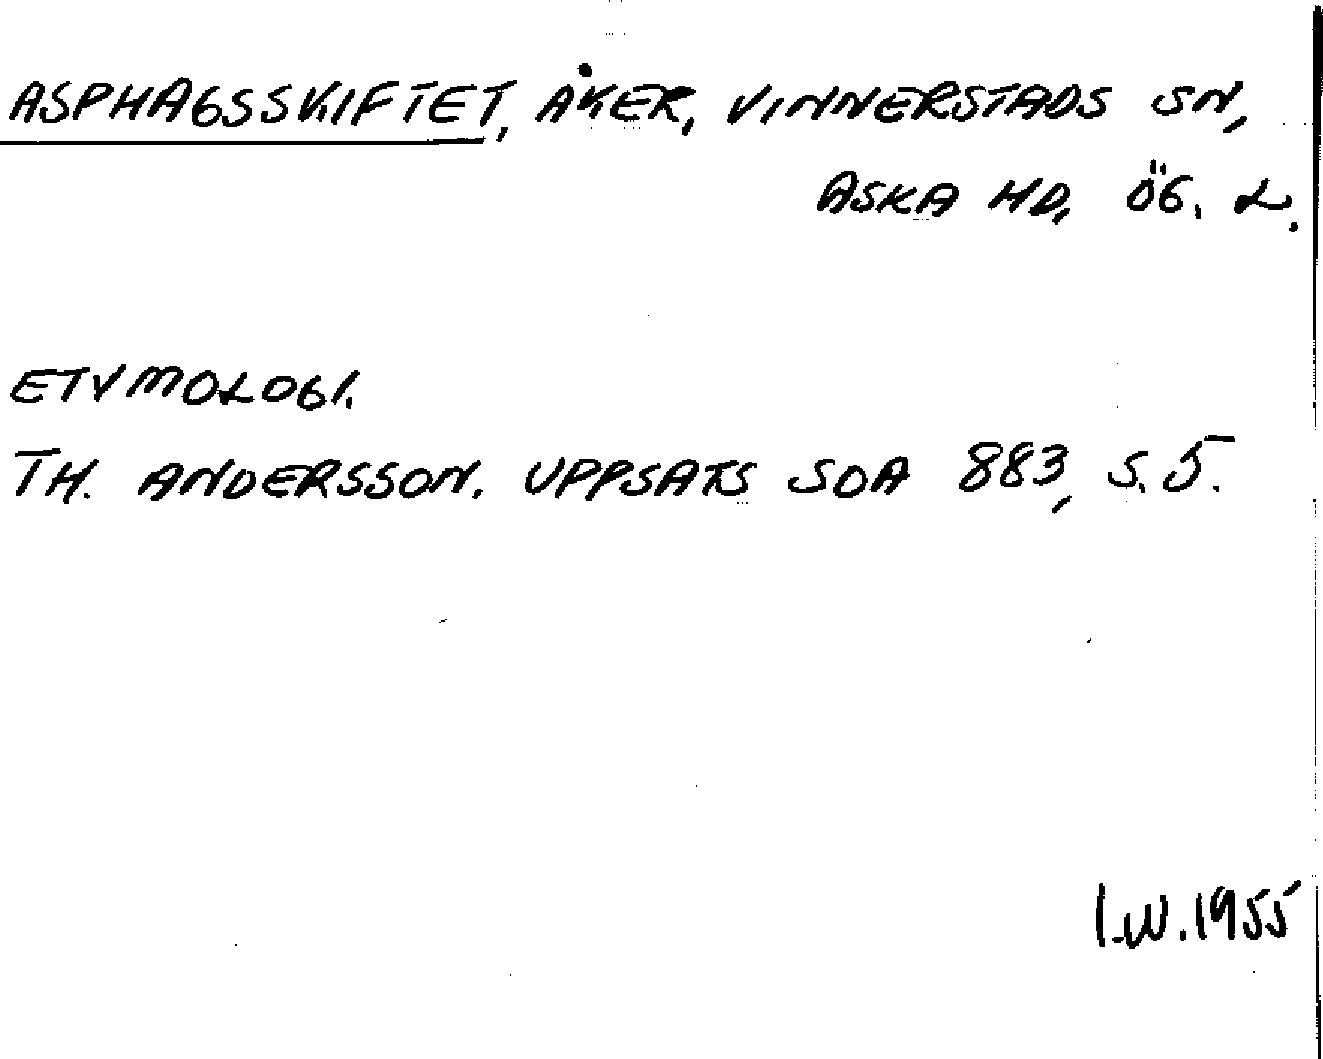 ASPHAGSSKIFTET, ÅKER, VINNERSTADS SN,
ASKA HD, ÖG. L.
ETYMOLOGI.
TH. ANDERSSON. UPPSATS SOA 883, S. 5.
I.W. 1955